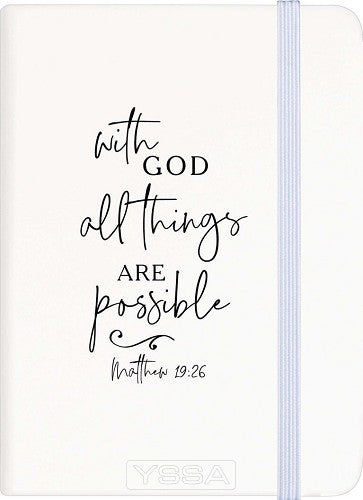 with
GOD
all things
ARE
possible
Matthew 19:26
YSSA